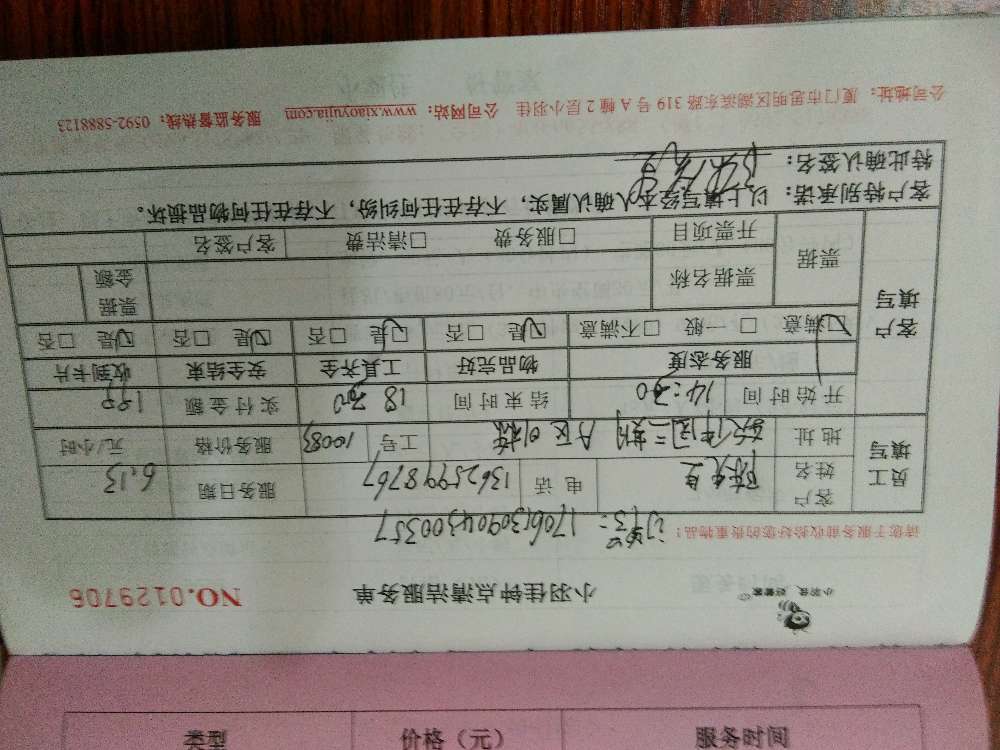 小羽佳 好管家
小羽佳钟点清洁服务单
NO.0129706
请您于服务前收拾好您的贵重物品：
订单号：1706130904300357
员工填写
客户姓名 陈先生 电话 13625998767 服务日期 6.13
地址 二期 A区 工号 10083 服务价格 元/小时
开始时间 14:30 结束时间 18 实付金额
客户填写
服务态度 物品完好 工具齐全 安全结束 收到卡片
☑满意 □一般 □不满意 ☑是 □否 ☑是 □否 ☑是 □否 ☑是 □否
票据 票据名称 票据金额
开票项目 □服务费 □清洁费 客户签名
客户特别承诺：以上填写经本人确认属实，不存在任何纠纷，不存在任何物品损坏。
特此确认签名：
公司地址：厦门市思明区湖滨东路 319 号 A 幢 2 层小羽佳 公司网站：www.xiaoyujia.com 服务监督热线：0592-5888123
类型 价格（元） 服务时间